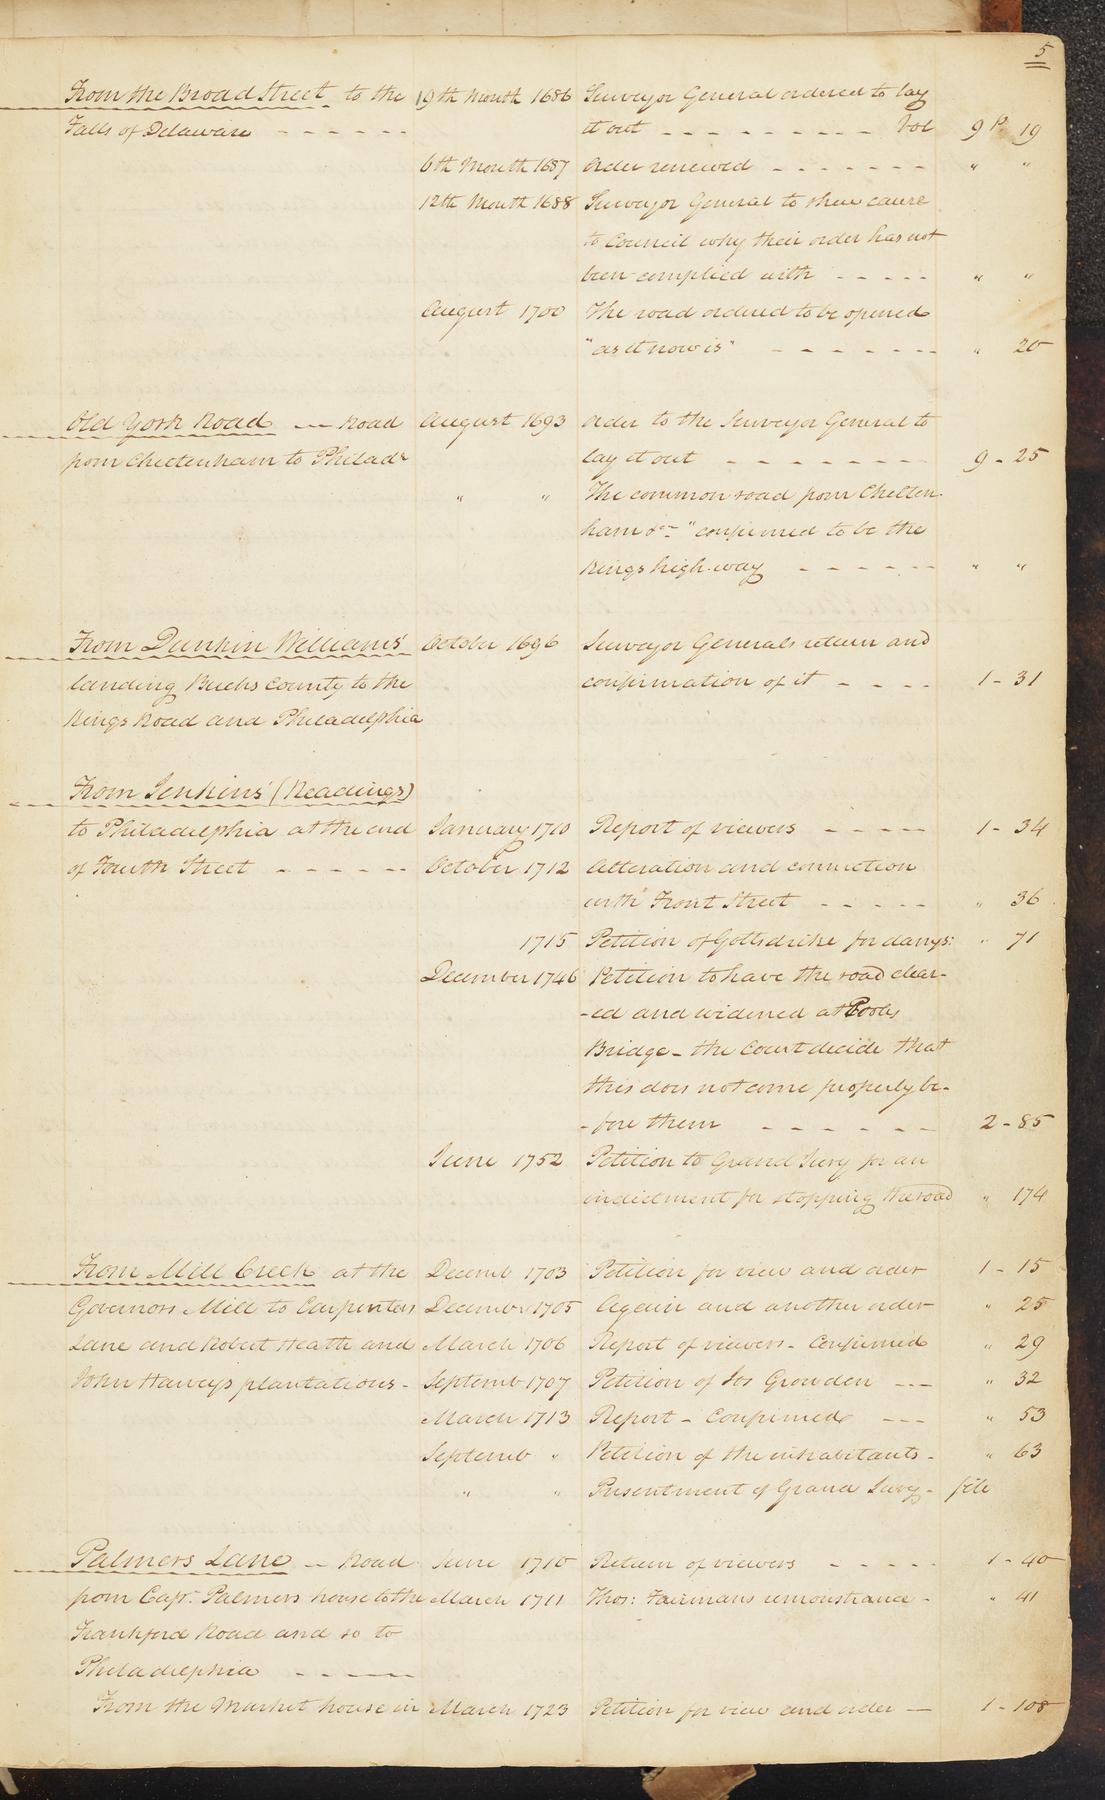 5
From the Broad Street to the 19th Month 1686 Surveyor General ordered to lay
Falls of Delaware - - - - - - it out - - - - - - - - - - Vol 9 P. 19
6th Month 1687 Order renewed - - - - - - - " "
12th Month 1688 Surveyor General to shew cause
to Council why their order has not
been complied with - - - - - " "
August 1700 The road ordered to be opened
"as it now is" - - - - - - - " 20
Old York Road — Road August 1693 Order to the Surveyor General to
from Cheltenham to Philada lay it out - - - - - - - - 9 - 25
" " The common road from Chelten-
ham &c "confirmed to be the
Kings high-way - - - - - - " "
From Dunkin Williams' October 1696 Surveyor Generals return and
landing Bucks County to the confirmation of it - - - - 1 - 31
Kings Road and Philadelphia
From Jenkins' (Readings)
to Philadelphia at the end January 1710 Report of viewers - - - - - 1 - 34
of Fourth Street - - - - - - October 1712 Alteration and connection
with Front Street - - - - - " 36
1715 Petition of Gottschike for damgs: " 71
December 1746 Petition to have the road clear-
-ed and widened at Pooles
Bridge - the Court decide that
this does not come properly be-
-fore them - - - - - - 2 - 85
June 1752 Petition to Grand Jury for an
indictment for stopping the road " 174
From Mill Creek at the Decemb 1703 Petition for view and order 1 - 15
Governors Mill to Carpenters December 1705 Again and another order " 25
Lane and Robert Heath and March 1706 Report of viewers - Confirmed " 29
John Harveys plantations - Septemb 1707 Petition of Jos Growden - - - " 32
March 1713 Report - Confirmed - - - " 53
Septemb " Petition of the inhabitants - " 63
" " Presentment of Grand Jury - file
Palmers Lane — Road June 1710 Return of viewers - - - - - 1 - 40
from Capt. Palmers house to the March 1711 Thos: Fairmans remonstrance - " 41
Frankford Road and so to
Philadelphia - - - - -
From the Market house in March 1723 Petition for view and order — 1 - 108